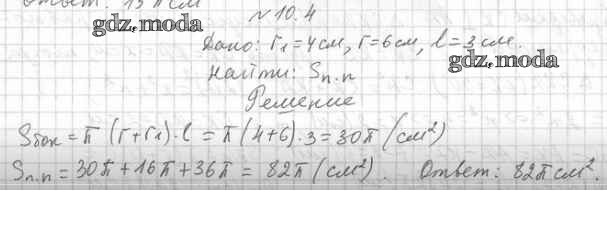 Ответ: 15π см
gdz.moda
№ 10.4
Дано: r₁=4см, r=6см, l=3см.
gdz.moda
Найти: Sп.п
Решение
Sбок = π (r+r₁)·l = π(4+6)·3=30π (см²)
Sп.п = 30π+16π+36π = 82π (см²). Ответ: 82π см².